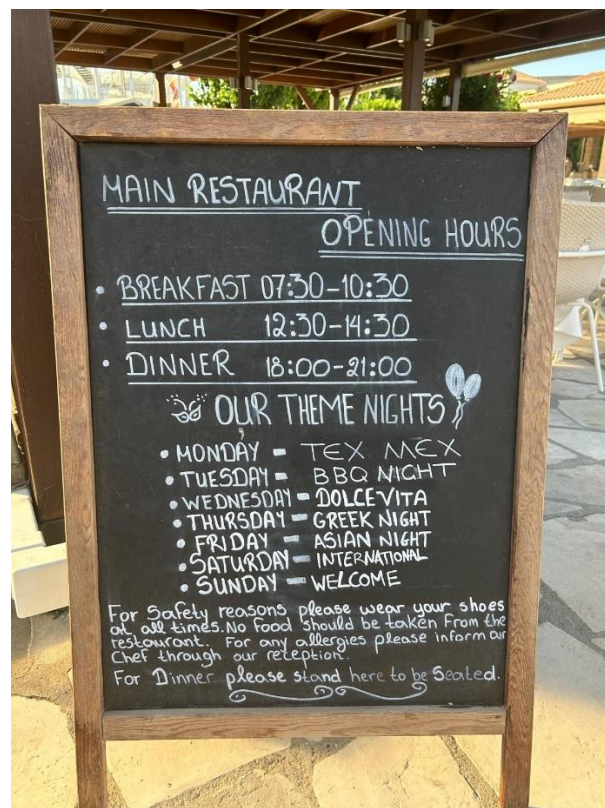 MAIN RESTAURANT
OPENING HOURS
• BREAKFAST 07:30-10:30
• LUNCH 12:30-14:30
• DINNER 18:00-21:00
OUR THEME NIGHTS
• MONDAY - TEX MEX
• TUESDAY - BBQ NIGHT
• WEDNESDAY - DOLCE VITA
• THURSDAY - GREEK NIGHT
• FRIDAY - ASIAN NIGHT
• SATURDAY - INTERNATIONAL
• SUNDAY - WELCOME
For Safety reasons please wear your shoes
at all times. No food should be taken from the
restaurant. For any allergies please inform our
Chef through our reception.
For Dinner please stand here to be Seated.